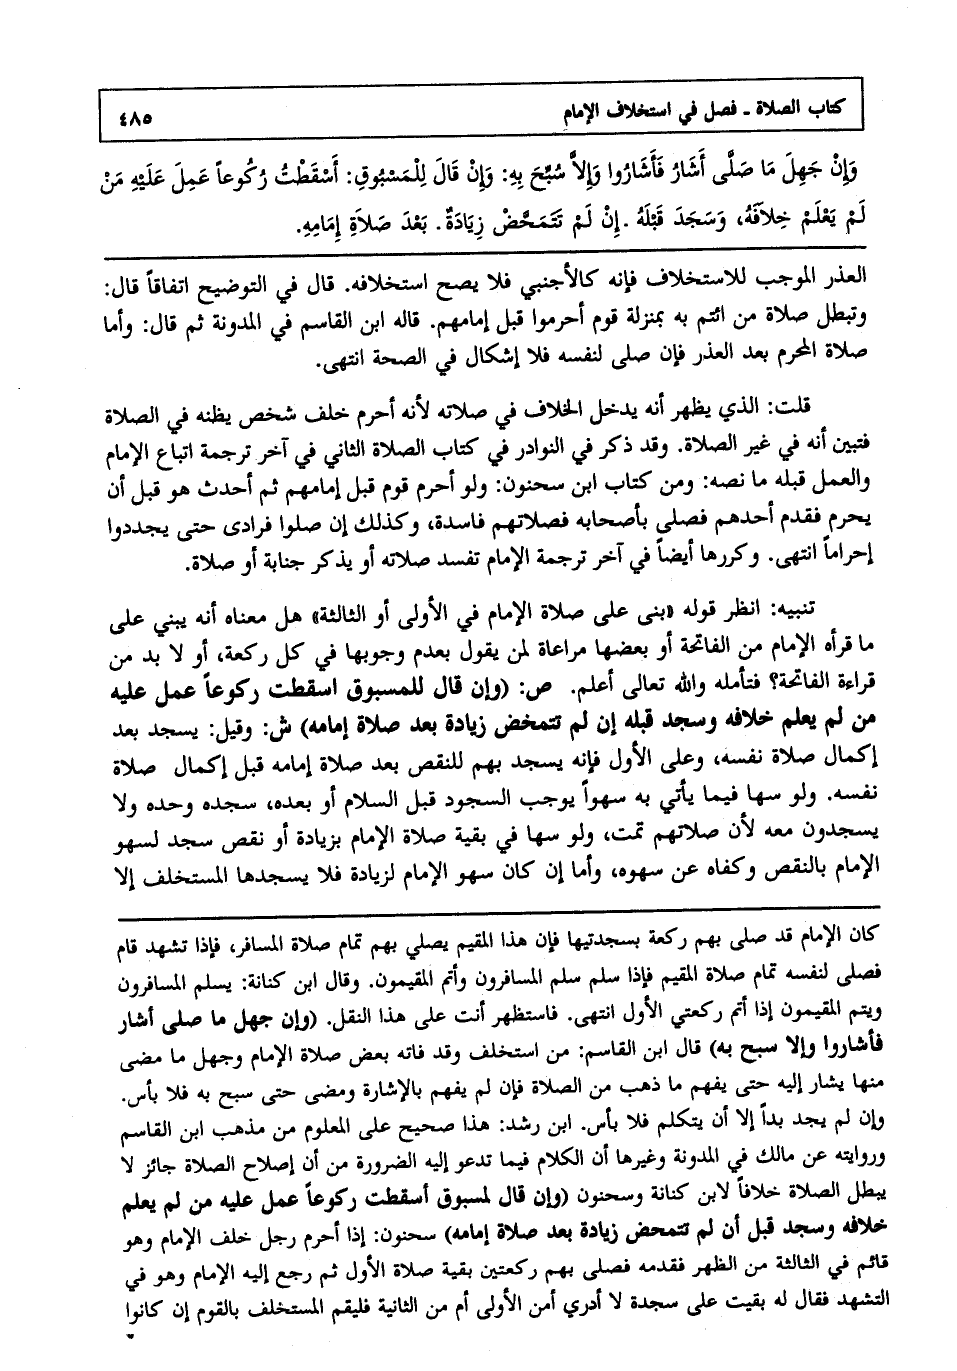 كتاب الصلاة ـ فصل في استخلاف الإمام ٤٨٥
وَإِنْ جَهِلَ مَا صَلَّى أَشَارُ فَأَشَارُوا وَإِلاَّ سُبِّحَ بِهِ: وَإِنْ قَالَ لِلْمَسْبُوقِ: أَسْقَطْتُ رُكُوعاً عَمِلَ عَلَيْهِ مَنْ
لَمْ يَعْلَمْ خِلاَفَهُ، وَسَجَدَ قَبْلَهُ .إِنْ لَمْ تَتَمَحَّضْ زِيَادَةٌ. بَعْدَ صَلاَةِ إِمَامِهِ.
العذر الموجب للاستخلاف فإنه كالأجنبي فلا يصح استخلافه. قال في التوضيح اتفاقاً قال:
وتبطل صلاة من ائتم به بمنزلة قوم أحرموا قبل إمامهم. قاله ابن القاسم في المدونة ثم قال: وأما
صلاة المحرم بعد العذر فإن صلى لنفسه فلا إشكال في الصحة انتهى.
قلت: الذي يظهر أنه يدخل الخلاف في صلاته لأنه أحرم خلف شخص يظنه في الصلاة
فتبين أنه في غير الصلاة. وقد ذكر في النوادر في كتاب الصلاة الثاني في آخر ترجمة اتباع الإمام
والعمل قبله ما نصه: ومن كتاب ابن سحنون: ولو أحرم قوم قبل إمامهم ثم أحدث هو قبل أن
يحرم فقدم أحدهم فصلى بأصحابه فصلاتهم فاسدة، وكذلك إن صلوا فرادى حتى يجددوا
إحراماً انتهى. وكررها أيضاً في آخر ترجمة الإمام تفسد صلاته أو يذكر جنابة أو صلاة.
تنبيه: انظر قوله «بنى على صلاة الإمام في الأولى أو الثالثة» هل معناه أنه يبني على
ما قرأه الإمام من الفاتحة أو بعضها مراعاة لمن يقول بعدم وجوبها في كل ركعة، أو لا بد من
قراءة الفاتحة؟ فتأمله والله تعالى أعلم. ص: (وإن قال للمسبوق اسقطت ركوعاً عمل عليه
من لم يعلم خلافه وسجد قبله إن لم تتمخض زيادة بعد صلاة إمامه) ش: وقيل: يسجد بعد
إكمال صلاة نفسه، وعلى الأول فإنه يسجد بهم للنقص بعد صلاة إمامه قبل إكمال صلاة
نفسه. ولو سها فيما يأتي به سهواً يوجب السجود قبل السلام أو بعده، سجده وحده ولا
يسجدون معه لأن صلاتهم تمت، ولو سها في بقية صلاة الإمام بزيادة أو نقص سجد لسهو
الإمام بالنقص وكفاه عن سهوه، وأما إن كان سهو الإمام لزيادة فلا يسجدها المستخلف إلا
كان الإمام قد صلى بهم ركعة بسجدتيها فإن هذا المقيم يصلي بهم تمام صلاة المسافر، فإذا تشهد قام
فصلى لنفسه تمام صلاة المقيم فإذا سلم سلم المسافرون وأتم المقيمون. وقال ابن كنانة: يسلم المسافرون
ويتم المقيمون إذا أتم ركعتي الأول انتهى. فاستظهر أنت على هذا النقل. (وإن جهل ما صلى أشار
فأشاروا وإلا سبح به) قال ابن القاسم: من استخلف وقد فاته بعض صلاة الإمام وجهل ما مضى
منها يشار إليه حتى يفهم ما ذهب من الصلاة فإن لم يفهم بالإشارة ومضى حتى سبح به فلا بأس.
وإن لم يجد بداً إلا أن يتكلم فلا بأس. ابن رشد: هذا صحيح على المعلوم من مذهب ابن القاسم
وروايته عن مالك في المدونة وغيرها أن الكلام فيما تدعو إليه الضرورة من أن إصلاح الصلاة جائز لا
يبطل الصلاة خلافاً لابن كنانة وسحنون (وإن قال لمسبوق أسقطت ركوعاً عمل عليه من لم يعلم
خلافه وسجد قبل أن لم تتمحض زيادة بعد صلاة إمامه) سحنون: إذا أحرم رجل خلف الإمام وهو
قائم في الثالثة من الظهر فقدمه فصلى بهم ركعتين بقية صلاة الأول ثم رجع إليه الإمام وهو في
التشهد فقال له بقيت على سجدة لا أدري أمن الأولى أم من الثانية فليقم المستخلف بالقوم إن كانوا